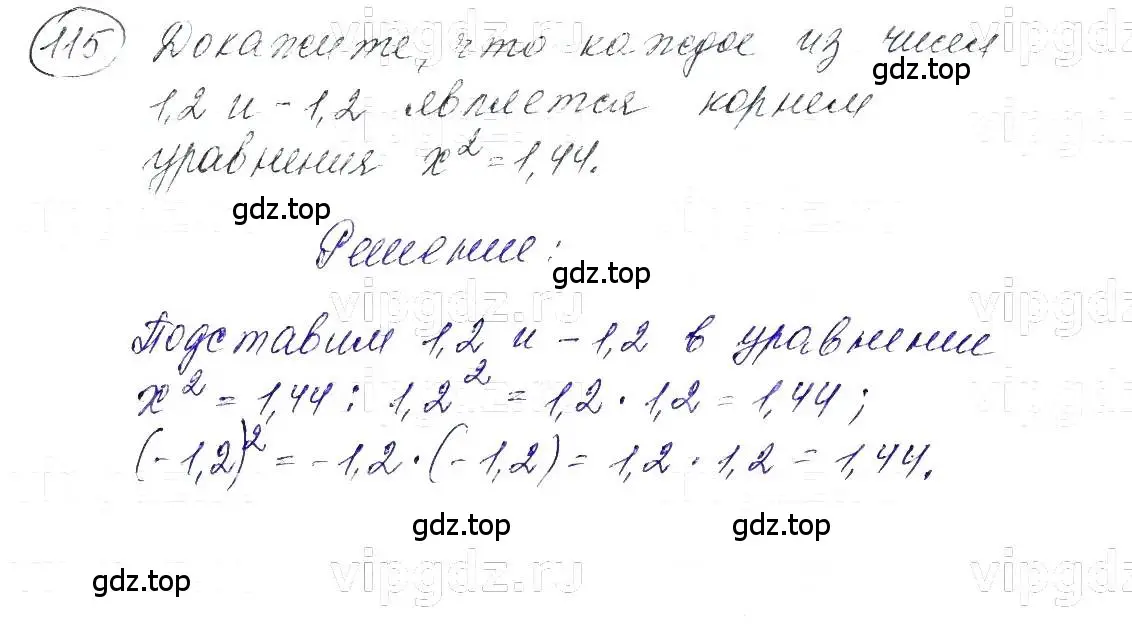 115 Докажите, что каждое из чисел
gdz.top
1,2 и -1,2 является корнем
уравнения x² = 1,44.
gdz.top
Решение:
gdz.top
vipgdz.ru
Подставим 1,2 и -1,2 в уравнение
x² = 1,44: 1,2² = 1,2 · 1,2 = 1,44;
(-1,2)² = -1,2 · (-1,2) = 1,2 · 1,2 = 1,44.
gdz.top gdz.top
gdz.top
vipgdz.ru